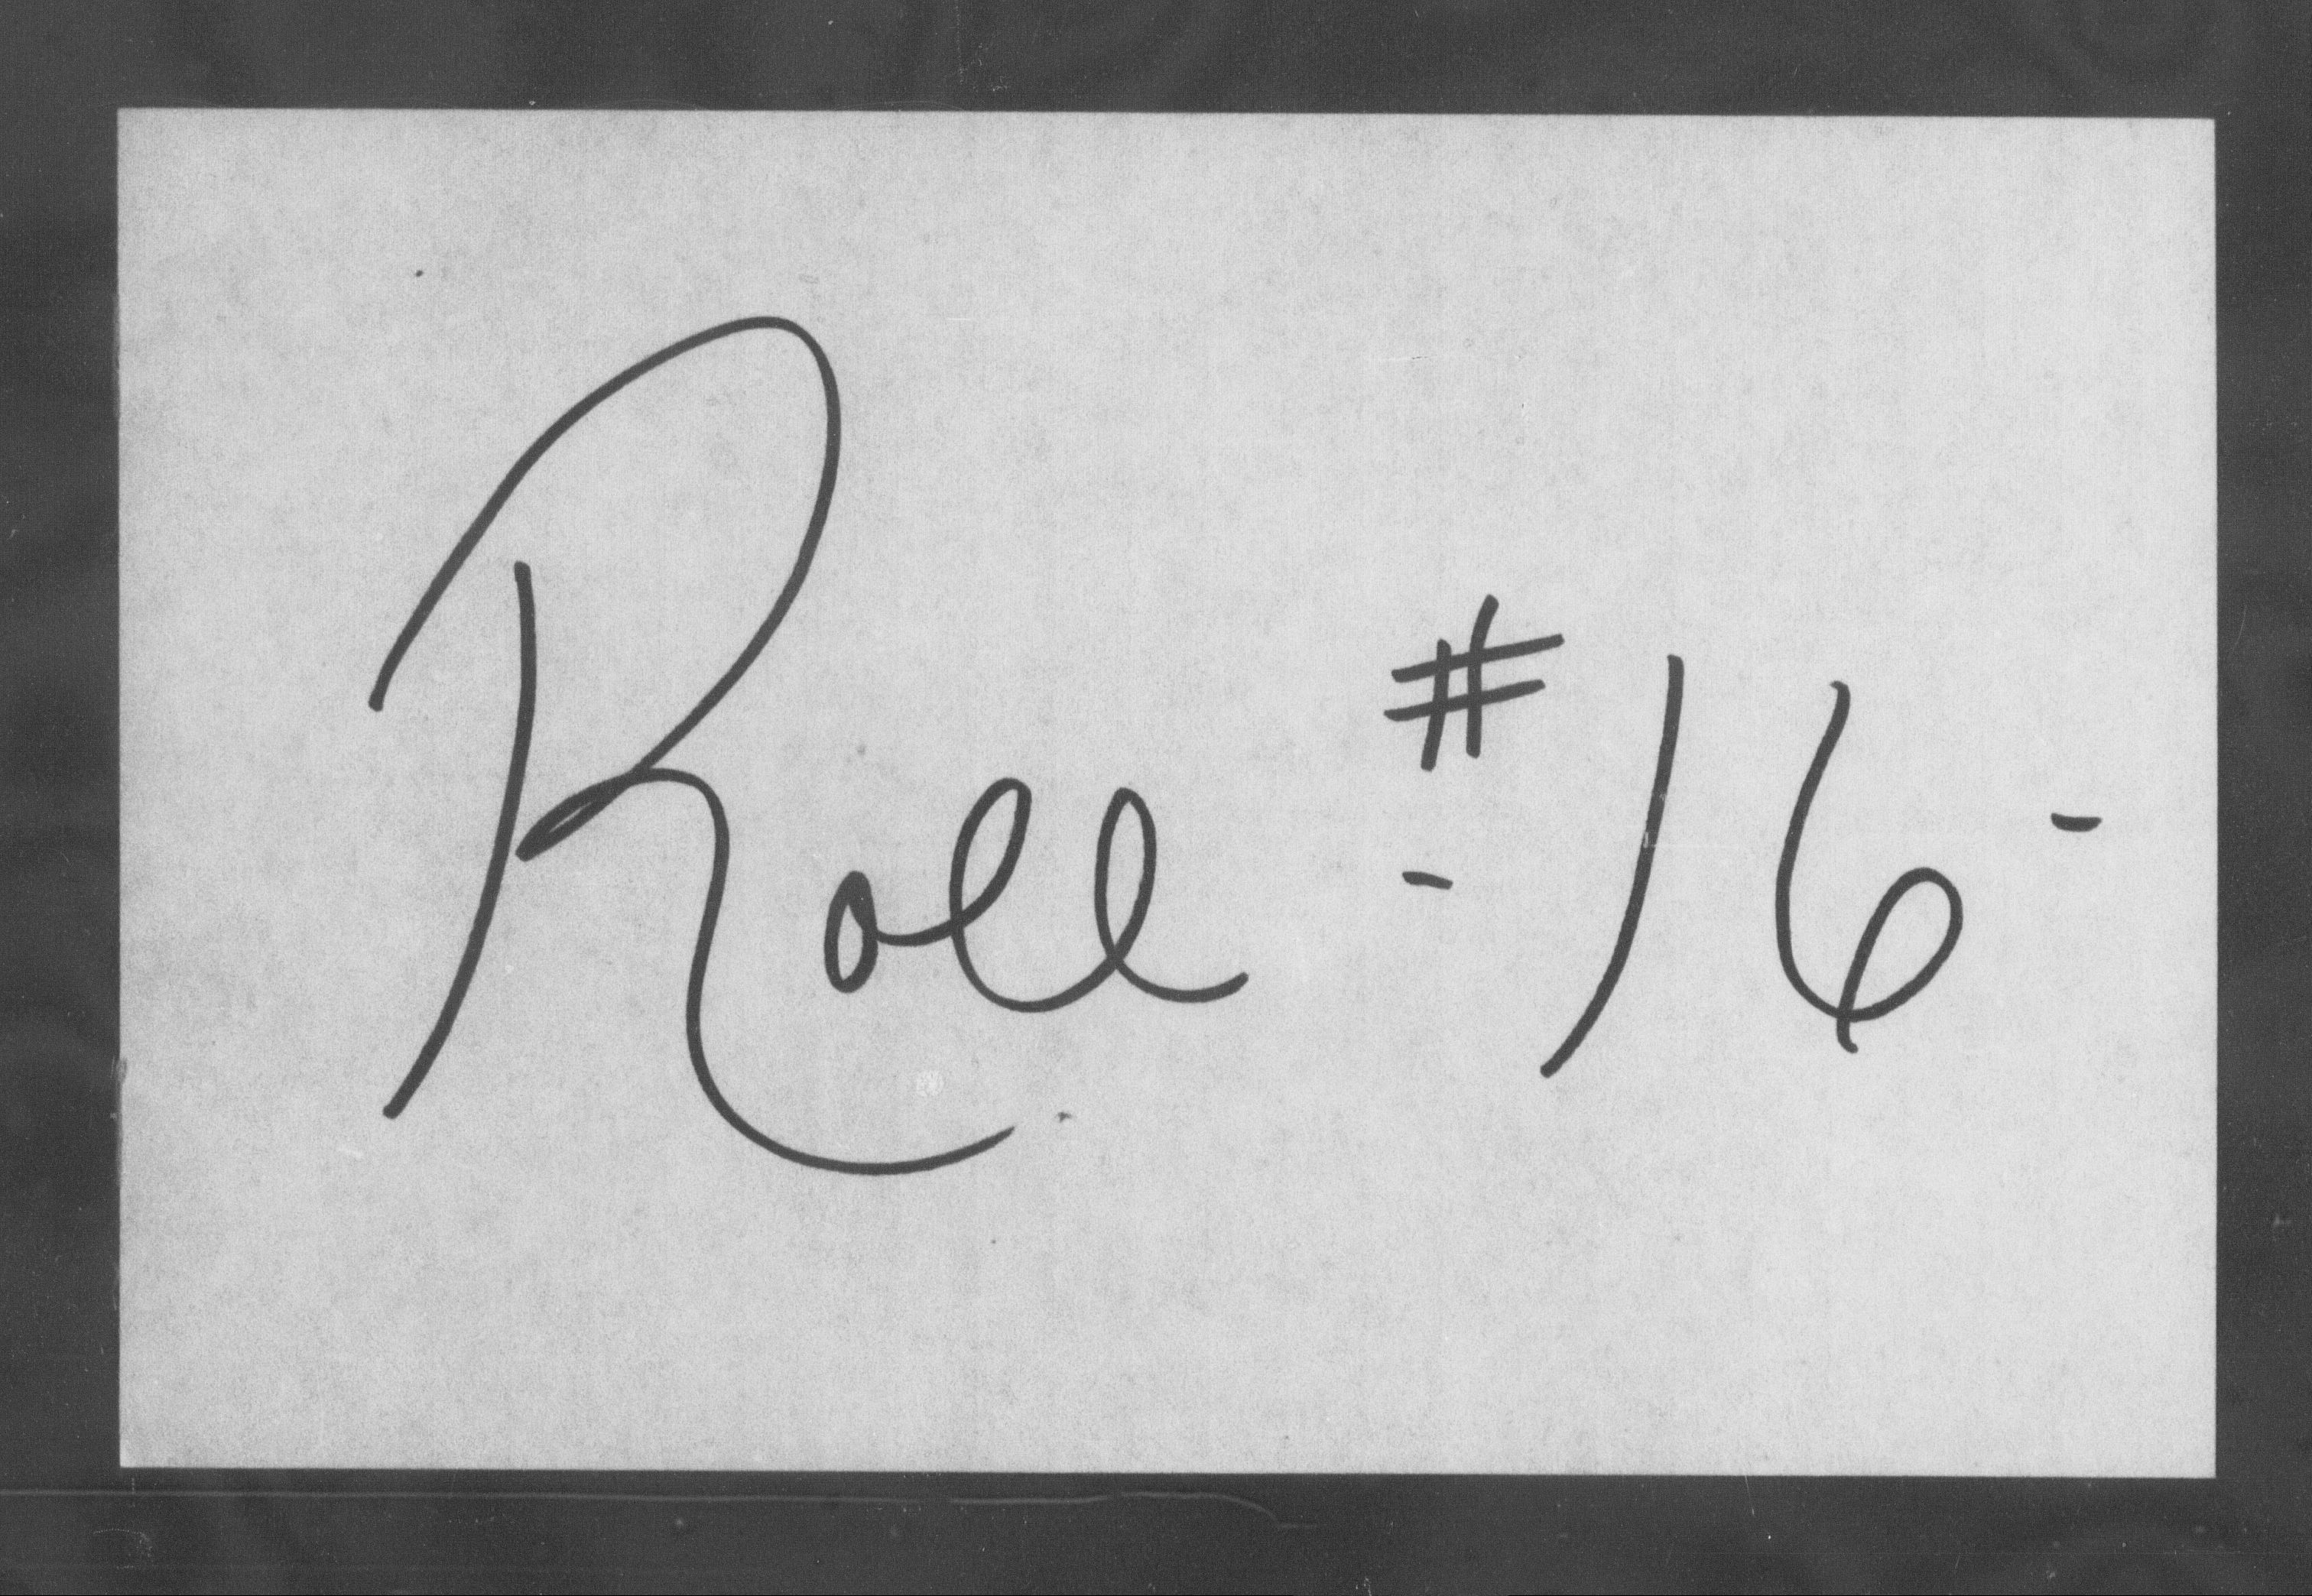 Roll - #16 -